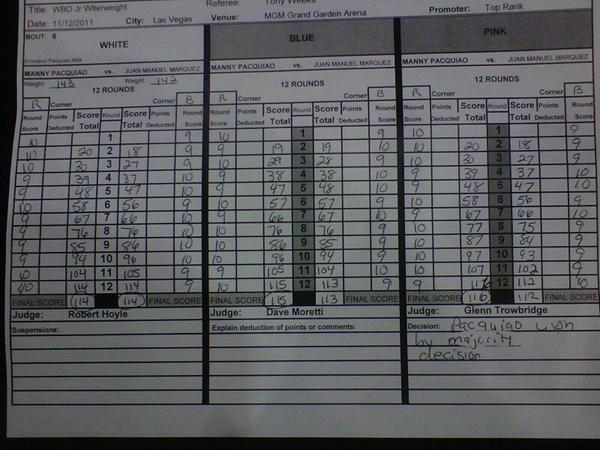 Title: WBO Jr Wlterweight
Referee: Tony Weeks
Promoter: Top Rank
Date: 11/12/2011 City: Las Vegas Venue: MGM Grand Garden Arena
BOUT: 8
WHITE
Emmanul Pacquiao AKA
MANNY PACQUIAO vs. JUAN MANUEL MARQUEZ
Weight: 143 Weight: 142
12 ROUNDS
R Corner Corner B
Round Score Points Deducted Score Total Round Score Total Points Deducted Round Score
10 1 9
10 20 2 18 9
10 30 3 27 9
9 39 4 37 10
9 48 5 47 10
10 58 6 56 9
9 67 7 66 10
9 76 8 76 10
9 85 9 86 10
9 94 10 96 10
10 104 11 105 9
10 114 12 114 9
FINAL SCORE 114 114 FINAL SCORE
Judge: Robert Hoyle
Suspensions:
BLUE
MANNY PACQUIAO vs. JUAN MANUEL MARQUEZ
12 ROUNDS
R Corner Corner B
Round Score Points Deducted Score Total Round Score Total Points Deducted Round Score
10 1 9
9 19 2 19 10
10 29 3 28 9
9 38 4 38 10
9 47 5 48 10
10 57 6 57 9
9 66 7 67 10
10 76 8 76 9
10 86 9 85 9
10 96 10 94 9
9 105 11 104 10
10 115 12 113 9
FINAL SCORE 115 113 FINAL SCORE
Judge: Dave Moretti
Explain deduction of points or comments:
PINK
MANNY PACQUIAO vs. JUAN MANUEL MARQUEZ
12 ROUNDS
R Corner Corner B
Round Score Points Deducted Score Total Round Score Total Points Deducted Round Score
10 1 9
10 20 2 18 9
10 30 3 27 9
9 39 4 37 10
9 48 5 47 10
10 58 6 56 9
9 67 7 66 10
10 77 8 75 9
10 87 9 84 9
10 97 10 93 9
10 107 11 102 9
9 116 12 112 10
FINAL SCORE 116 112 FINAL SCORE
Judge: Glenn Trowbridge
Decision: Pacquiao won
by majority
decision